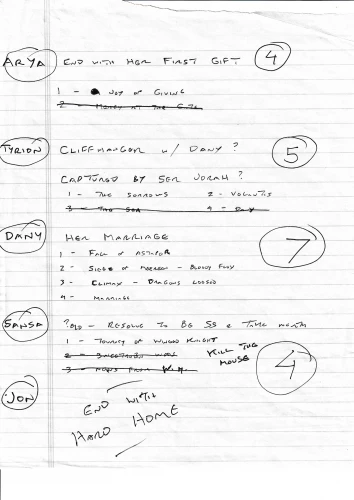 ARYA END WITH HER FIRST GIFT 4
1 - JOY OF GIVING
2 - MERCY AT THE GATE
TYRION CLIFFHANGER W/ DANY? 5
CAPTURED BY SER JORAH?
1 - THE SORROWS 2 - VOLANTIS
3 - THE SEA 4 -
DANY HER MARRIAGE 7
1 - FALL OF ASTAPOR
2 - SIEGE OF MEEREEN - BLOODY FLUX
3 - CLIMAX - DRAGONS LOOSED
4 - MARRIAGE
SANSA - RESOLVE TO BE & TAKE 4
1 - TOURNEY OF WINGED KNIGHT
KILL THE MOUSE
2 -
3 - FROM
JON END WITH
HARD HOME